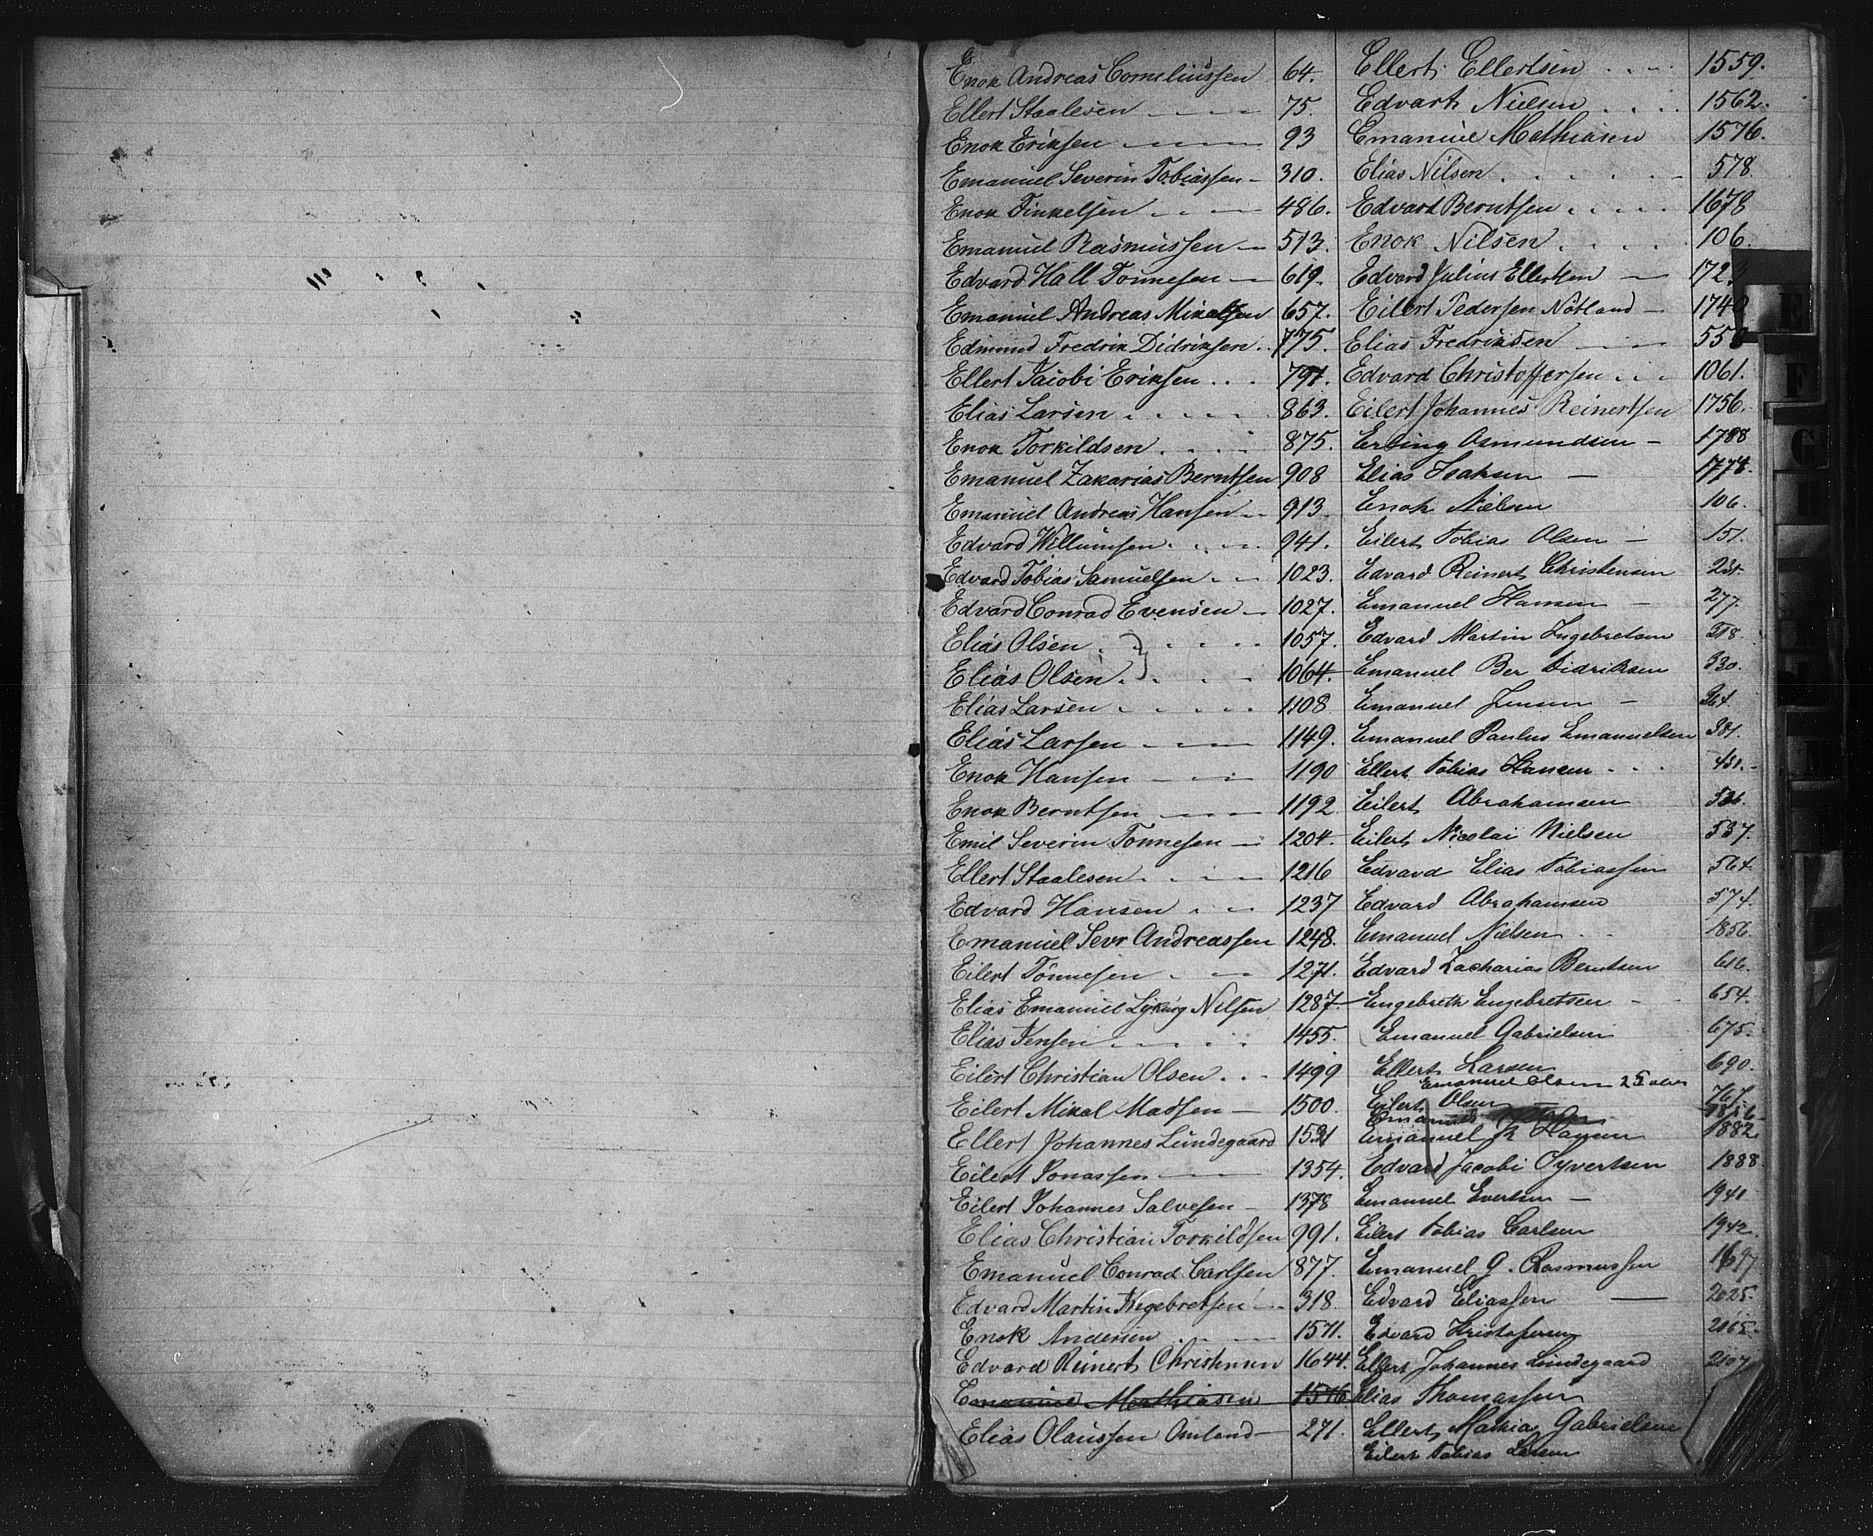 Enok Andreas Corneliussen 64.
Ellert Staalesen 75.
Enok Eriksen 93
Emanuel Severin Tobiassen 310.
Enok Finkelsen 486.
Emanuel Rasmussen 513.
Edvard Hall Tönnesen 619.
Emanuel Andreas Mikalsen 657.
Edmund Fredrik Didriksen 775.
Ellert Jacobi Eriksen 791.
Elias Larsen 863.
Enok Torkildsen 875.
Emanuel Zakarias Berntsen 908
Emanuel Andreas Hansen 913.
Edvard Willumsen 941.
Edvard Tobias Samuelsen 1023.
Edvard Conrad Evensen 1027.
Elias Olsen 1057.
Elias Olsen 1064.
Elias Larsen 1108
Elias Larsen 1149.
Enok Hansen 1190
Enok Berntsen 1192
Emil Severin Tönnesen 1204.
Ellert Staalesen 1216
Edvard Hansen 1237
Emanuel Sevr Andreassen 1248.
Eilert Tönnesen 1271.
Elias Emanuel Nilsen 1287
Elias Jensen 1455.
Eilert Christian Olsen 1499
Eilert Mikal Madsen 1500.
Ellert Johannes Lundegaard 1531
Eilert Jonassen 1354.
Eilert Johannes Salvesen 1378
Elias Christian Torkildsen 991.
Emanuel Conrad Carlsen 877.
Edvard Martin Ingebretsen 318.
Enok Andersen 1571.
Edvard Reinert Christensen 1644.
Emanuel Mathiasen 1576
Elias Olaussen Omland 271.
Ellert Ellertsen 1559.
Edvart Nielsen 1562.
Emanuel Mathiasen 1576.
Elias Nilsen 578.
Edvard Berntsen 1678
Enok Nilsen 106.
Edvard Julius Ellertsen 1723
Eilert Pedersen Nötland 174
Elias Fredriksen 558
Edvard Christoffersen 1061.
Eilert Johannes Reinertsen 1756.
Erling Osmundsen 1788
Elias Isaksen 1778.
Enok Nielsen 106.
Eilert Tobias Olsen 151.
Edvard Reinert Christensen 231.
Emanuel Hansen 277.
Edvard Martin Ingebretsen 318.
Emanuel Ber Didriksen 330.
Emanuel Jensen 364.
Emanuel Paulus Emanuelsen 381.
Ellert Tobias Hansen 451.
Eilert Abrahamsen
Eilert Nicolai Nielsen 537.
Edvard Elias Tobiassen 564.
Edvard Abrahamsen 574.
Emanuel Nielsen 1856.
Edvard Zacharias Berntsen 616.
Engebreth Engebretsen 654.
Emanuel Gabrielsen 675.
Ellert Larsen 690.
Emanuel Olsen
Eilert Olsen 767.
Emanuel
Emanuel R Hansen 1882
Edvard Jacobi Syvertsen 1888
Emanuel Evertsen 1941
Eilert Tobias Carlsen 1942.
Emanuel G. Rasmussen 1697
Edvard Eliassen 2025.
Edvard Kristofersen 2165.
Ellert Johannes Lundegaard 2107
Elias Thomassen
Ellert Mathias Gabrielsen
Eilert Tobias Larsen
E
F
G